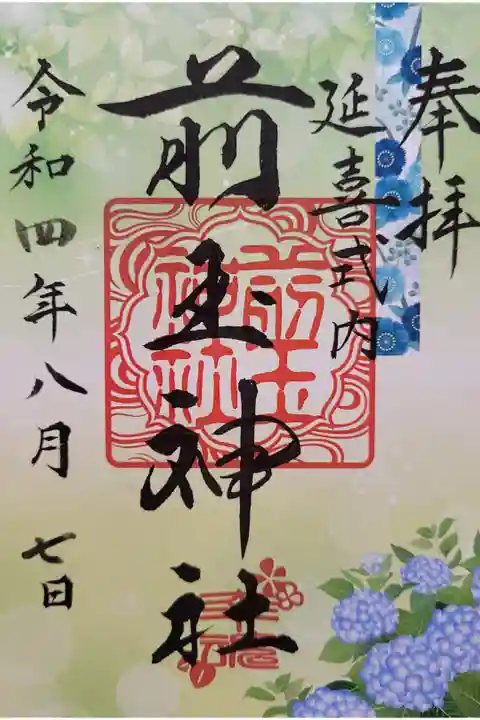 奉拝
延喜式内
前玉神社
前玉
神社
令和四年八月七日